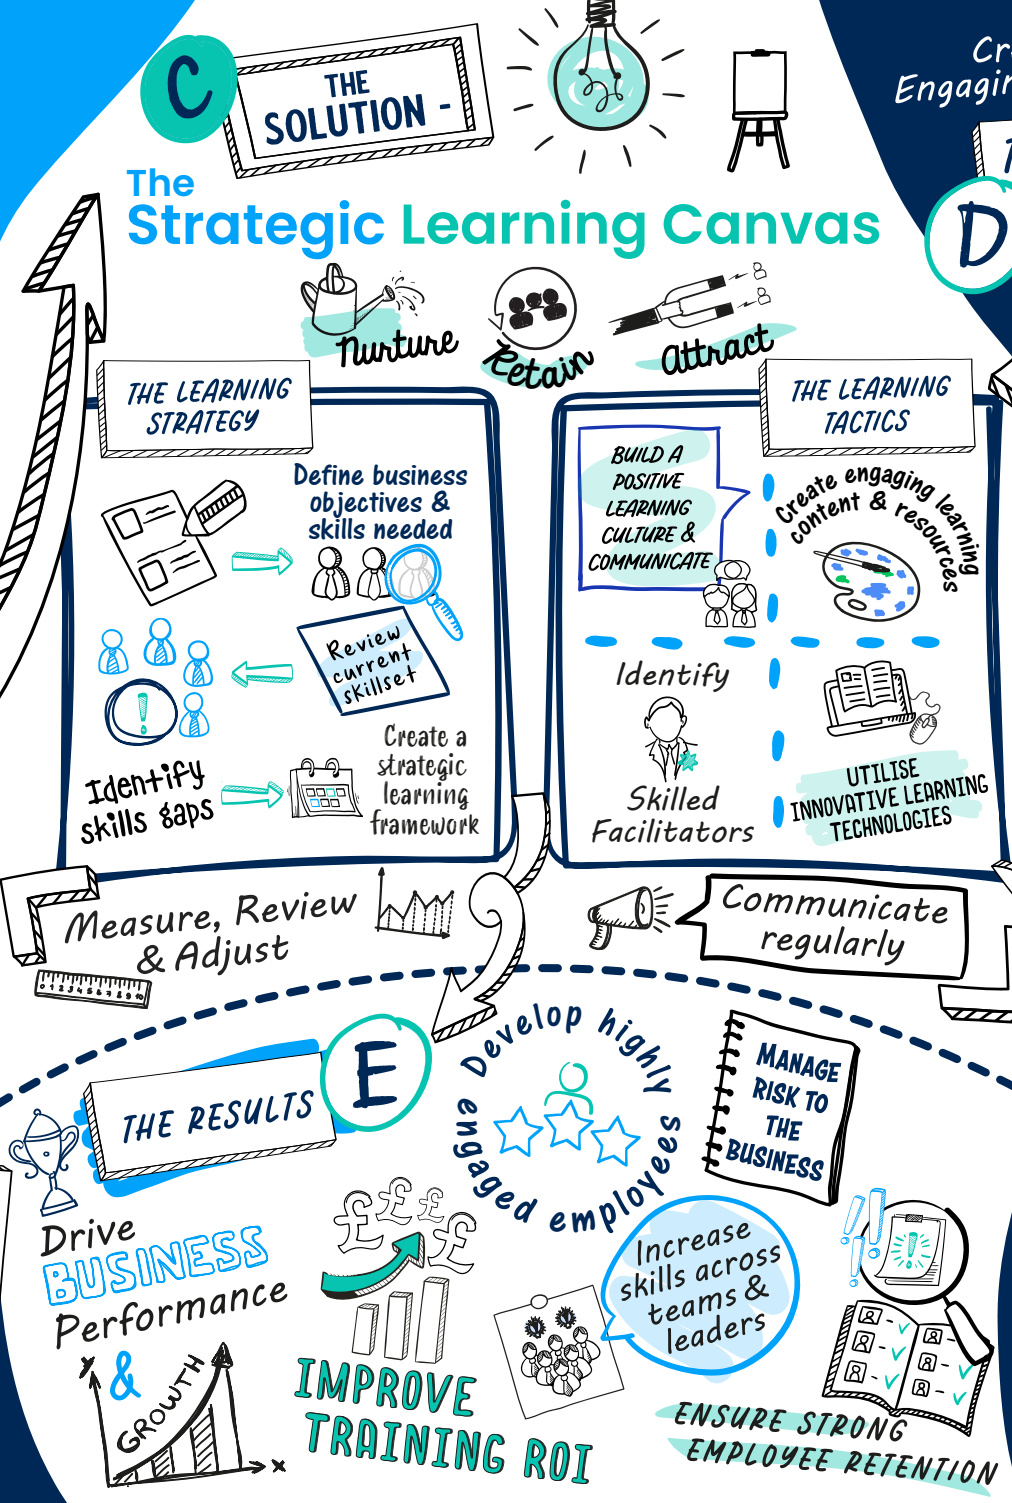 C
THE
SOLUTION -
The
Strategic Learning Canvas
Nurture
Retain
Attract
D
THE LEARNING
STRATEGY
Define business
objectives &
skills needed
Review
current
skillset
Identify
skills gaps
Create a
strategic
learning
framework
THE LEARNING
TACTICS
BUILD A
POSITIVE
LEARNING
CULTURE &
COMMUNICATE
Create engaging learning
content & resources
Identify
Skilled
Facilitators
UTILISE
INNOVATIVE LEARNING
TECHNOLOGIES
Measure, Review
& Adjust
0 1 2 3 4 5 6 7 8 9 10
Communicate
regularly
E
THE RESULTS
Develop highly
engaged employees
MANAGE
RISK TO
THE
BUSINESS
Drive
BUSINESS
Performance
&
Y
GROWTH
X
££££
IMPROVE
TRAINING ROI
Increase
skills across
teams &
leaders
ENSURE STRONG
EMPLOYEE RETENTION